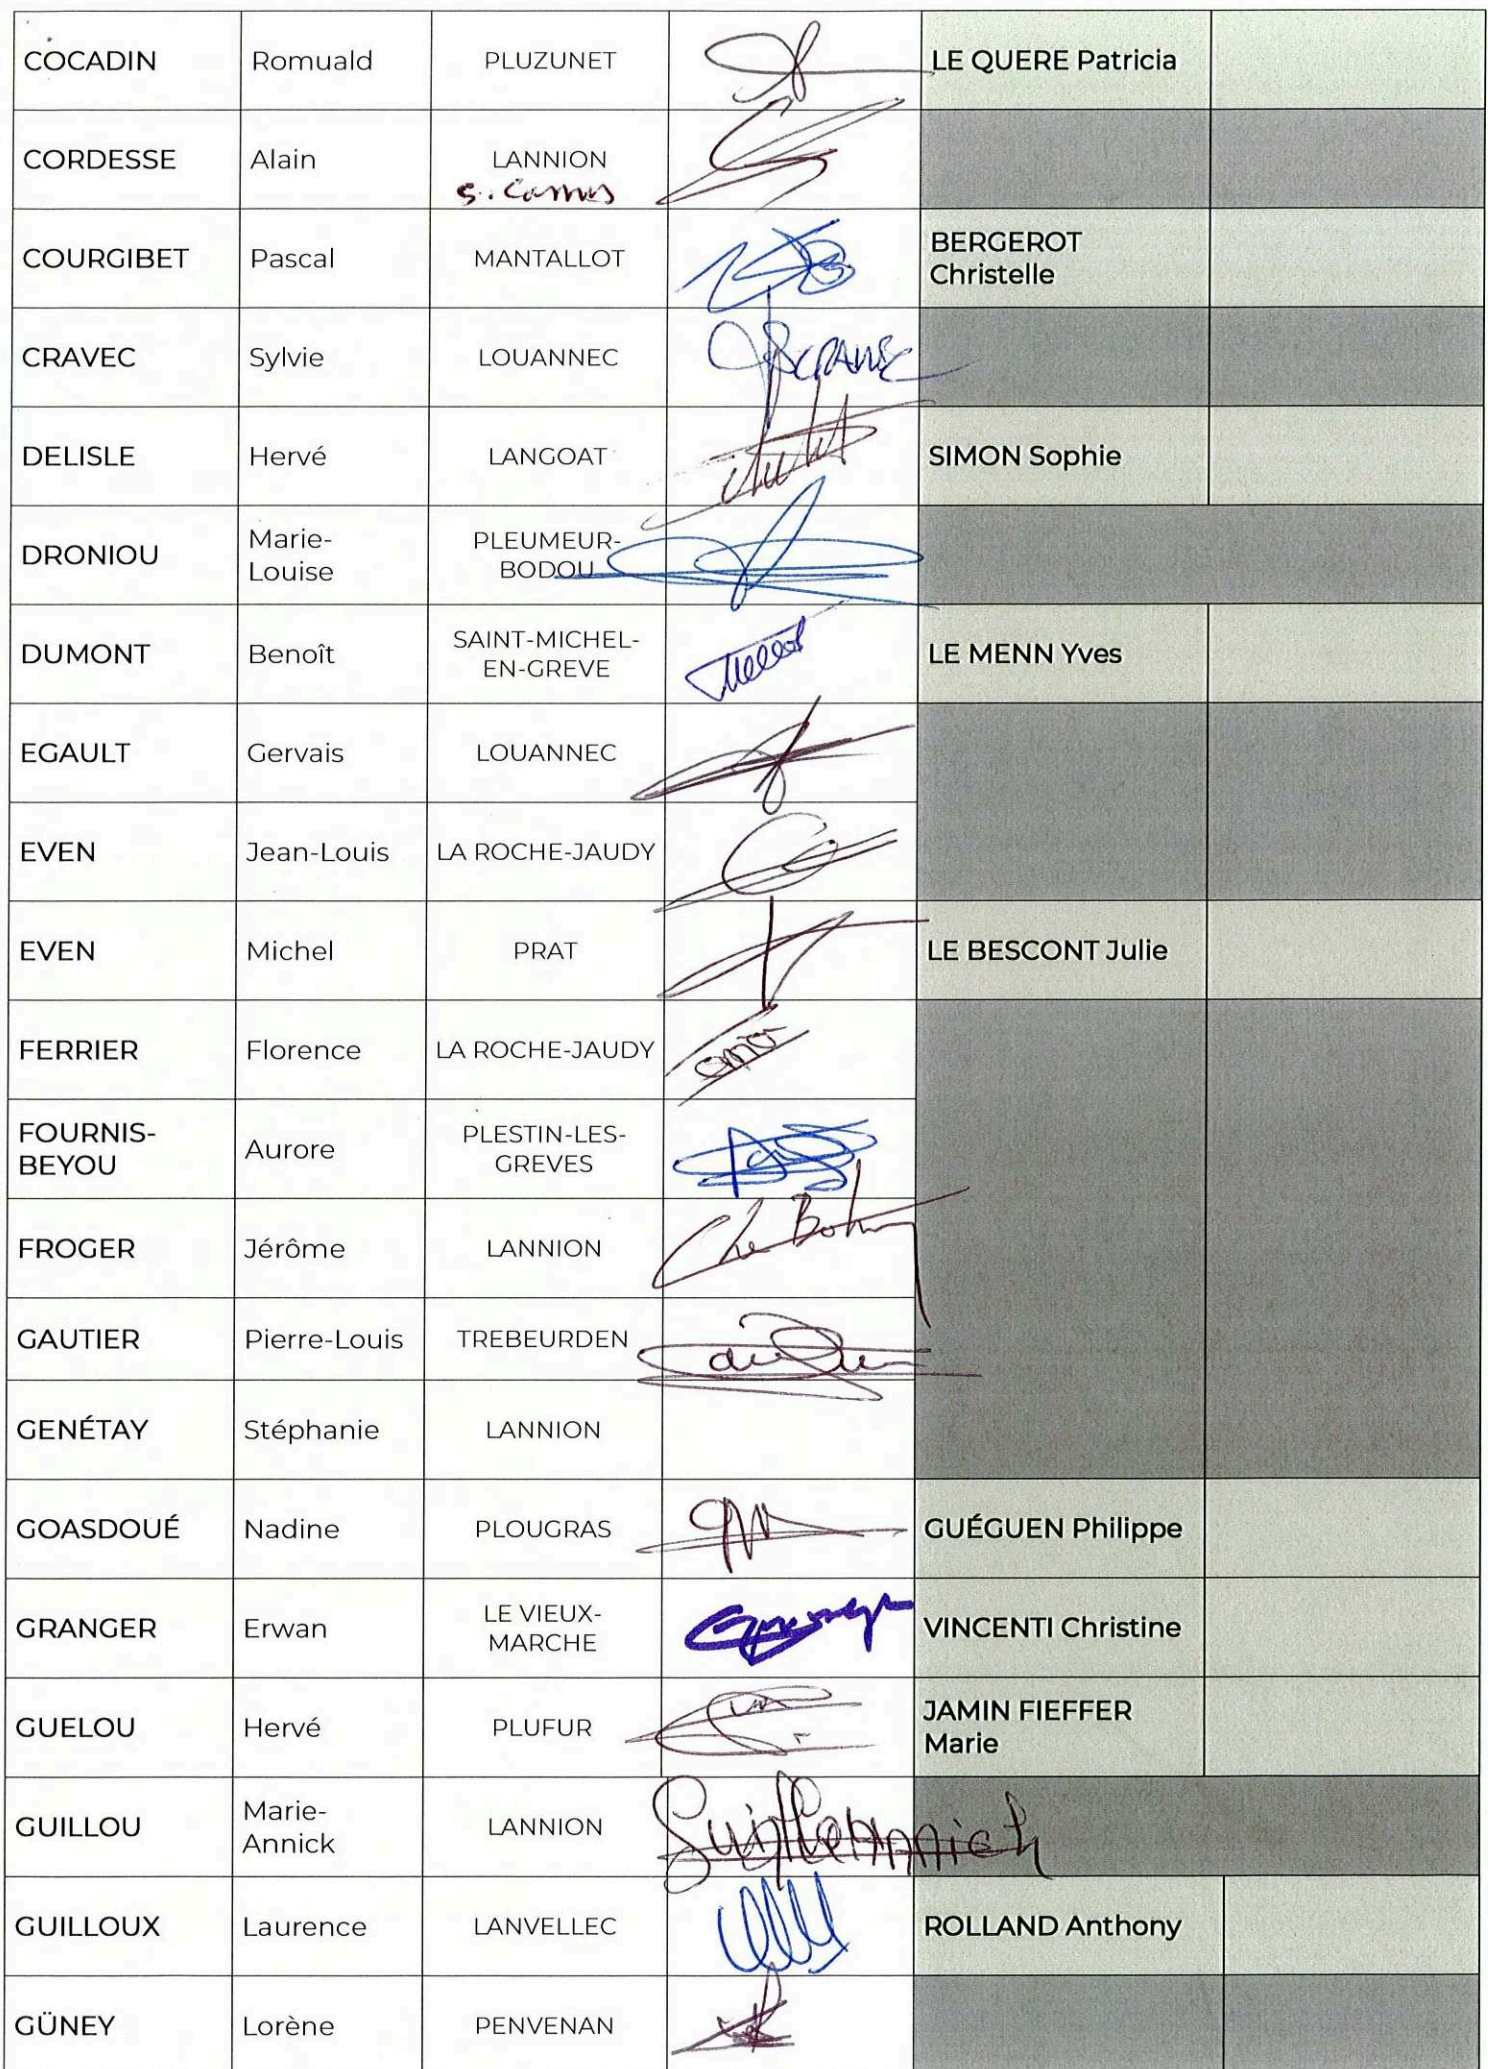 COCADIN Romuald PLUZUNET LE QUERE Patricia
CORDESSE Alain LANNION
COURGIBET Pascal MANTALLOT BERGEROT
Christelle
CRAVEC Sylvie LOUANNEC
DELISLE Hervé LANGOAT SIMON Sophie
DRONIOU Marie-
Louise PLEUMEUR-
BODOU
DUMONT Benoît SAINT-MICHEL-
EN-GREVE LE MENN Yves
EGAULT Gervais LOUANNEC
EVEN Jean-Louis LA ROCHE-JAUDY
EVEN Michel PRAT LE BESCONT Julie
FERRIER Florence LA ROCHE-JAUDY
FOURNIS-
BEYOU Aurore PLESTIN-LES-
GREVES
FROGER Jérôme LANNION
GAUTIER Pierre-Louis TREBEURDEN
GENÉTAY Stéphanie LANNION
GOASDOUÉ Nadine PLOUGRAS GUÉGUEN Philippe
GRANGER Erwan LE VIEUX-
MARCHE VINCENTI Christine
GUELOU Hervé PLUFUR JAMIN FIEFFER
Marie
GUILLOU Marie-
Annick LANNION
GUILLOUX Laurence LANVELLEC ROLLAND Anthony
GÜNEY Lorène PENVENAN